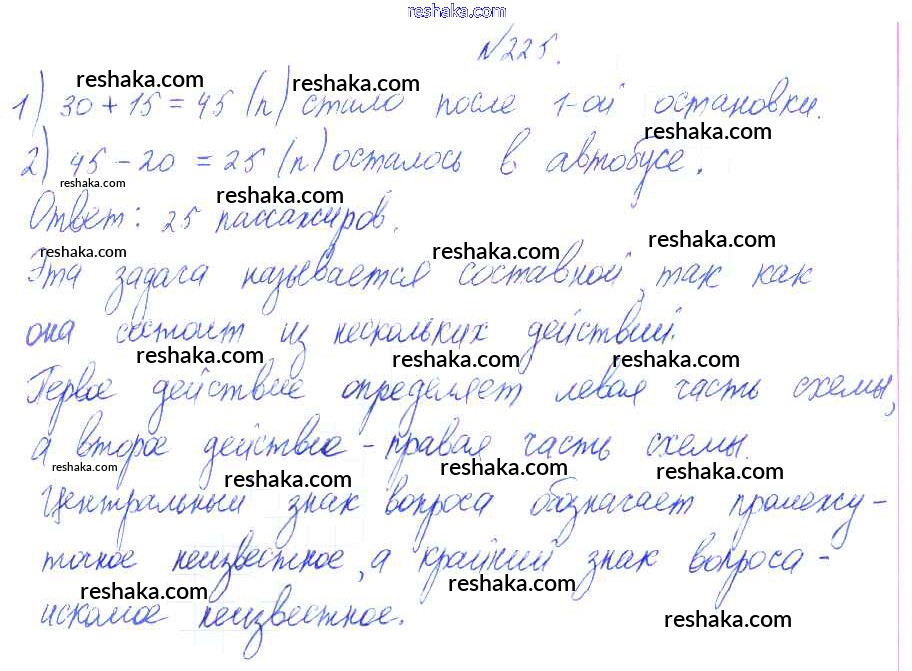 reshaka.com
№225.
reshaka.com reshaka.com
1) 30 + 15 = 45 (п) стало после 1-ой остановки.
reshaka.com
2) 45 - 20 = 25 (п) осталось в автобусе.
reshaka.com reshaka.com
Ответ: 25 пассажиров.
reshaka.com reshaka.com reshaka.com
Эта задача называется составной, так как
она состоит из нескольких действий.
reshaka.com reshaka.com reshaka.com
Первое действие определяет левая часть схемы,
а второе действие - правая часть схемы.
reshaka.com reshaka.com reshaka.com reshaka.com
Центральный знак вопроса обозначает промежу-
точное неизвестное, а крайний знак вопроса -
reshaka.com reshaka.com
искомое неизвестное.
reshaka.com